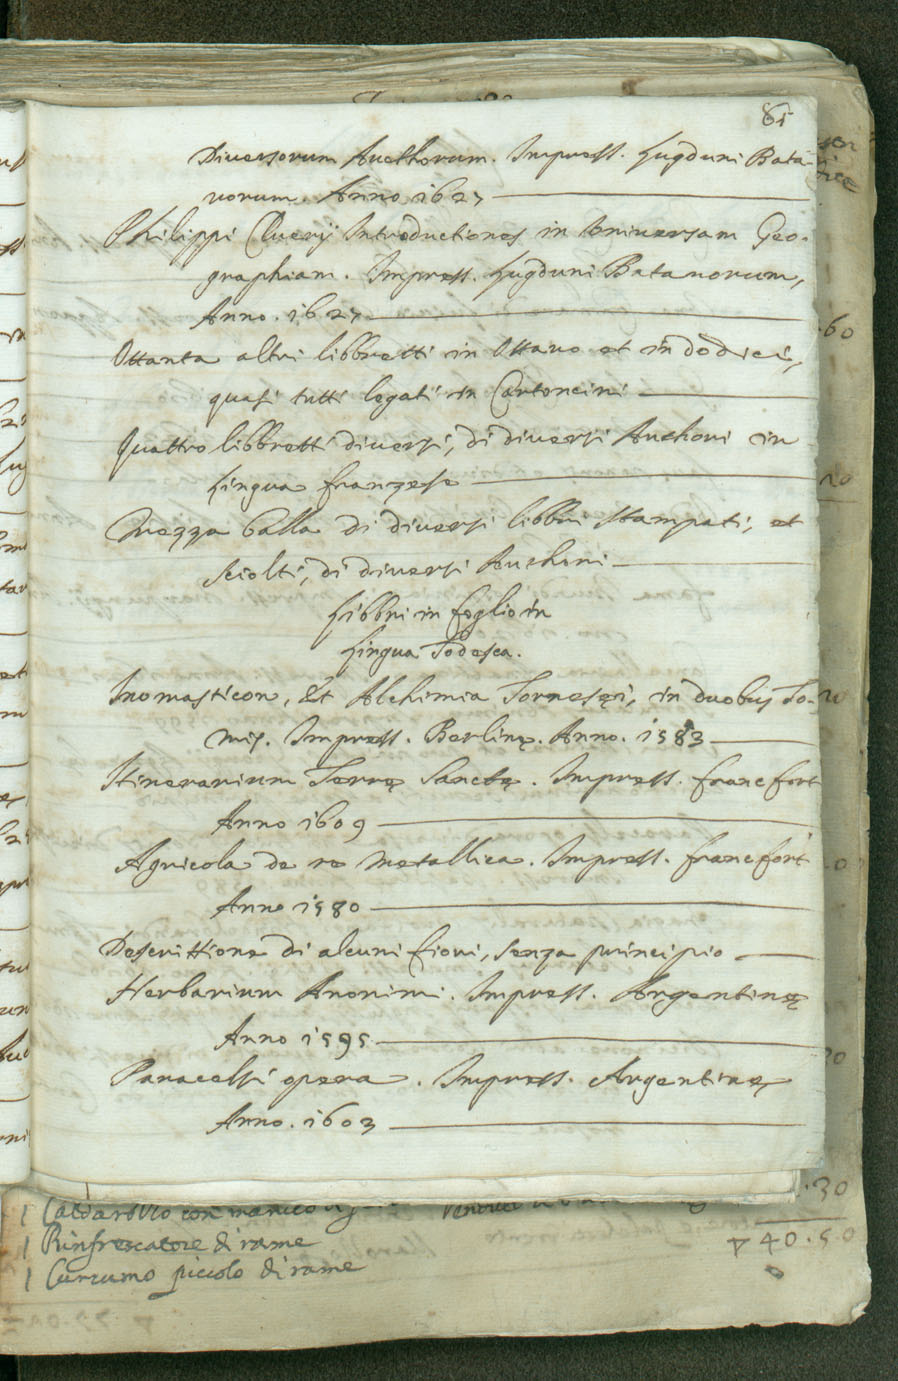 61
Diversorum Aucthorum. Impress. Lugduni Bata-
vorum. Anno 1627
Philippi Cluerij Introductiones in Universam Geo-
graphiam. Impress. Lugduni Batavorum,
Anno. 1627
Ottanta altri libbretti in Ottavo et in dodici,
quasi tutti legati in Cartoncini
Quattro libbretti diversi, di diversi Authori in
Lingua franzese
Mezza balla di diversi libbri stampati, et
sciolti, di diversi Authori
Libbri in foglio in
Lingua Todesca.
Inomasticon, Et Alchimia Tornesęri, in duobus To-
mis. Impress. Berlinę. Anno. 1583
Itinerarium Terrę Sanctę. Impress. francfort
Anno 1609
Agricola de re Metallica. Impress. francfort
Anno 1580
Descrittione di alcuni fiori, senza principio
Herbarium Anonimi. Impress. Argentinę
Anno 1595
Paracelsi opera. Impress. Argentinę
Anno. 1603
60
20
30
1 Caldarozzo con manico di
1 Rinfrescatore di rame
40.50
1 Cuccumo piccolo di rame